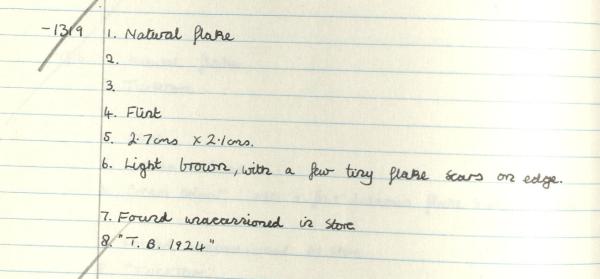 -1319 1. Natural flake
2.
3.
4. Flint
5. 2.7cms x 2.1cms.
6. Light brown, with a few tiny flake scars on edge.
7. Found unaccessioned in store
8. "T. B. 1924"